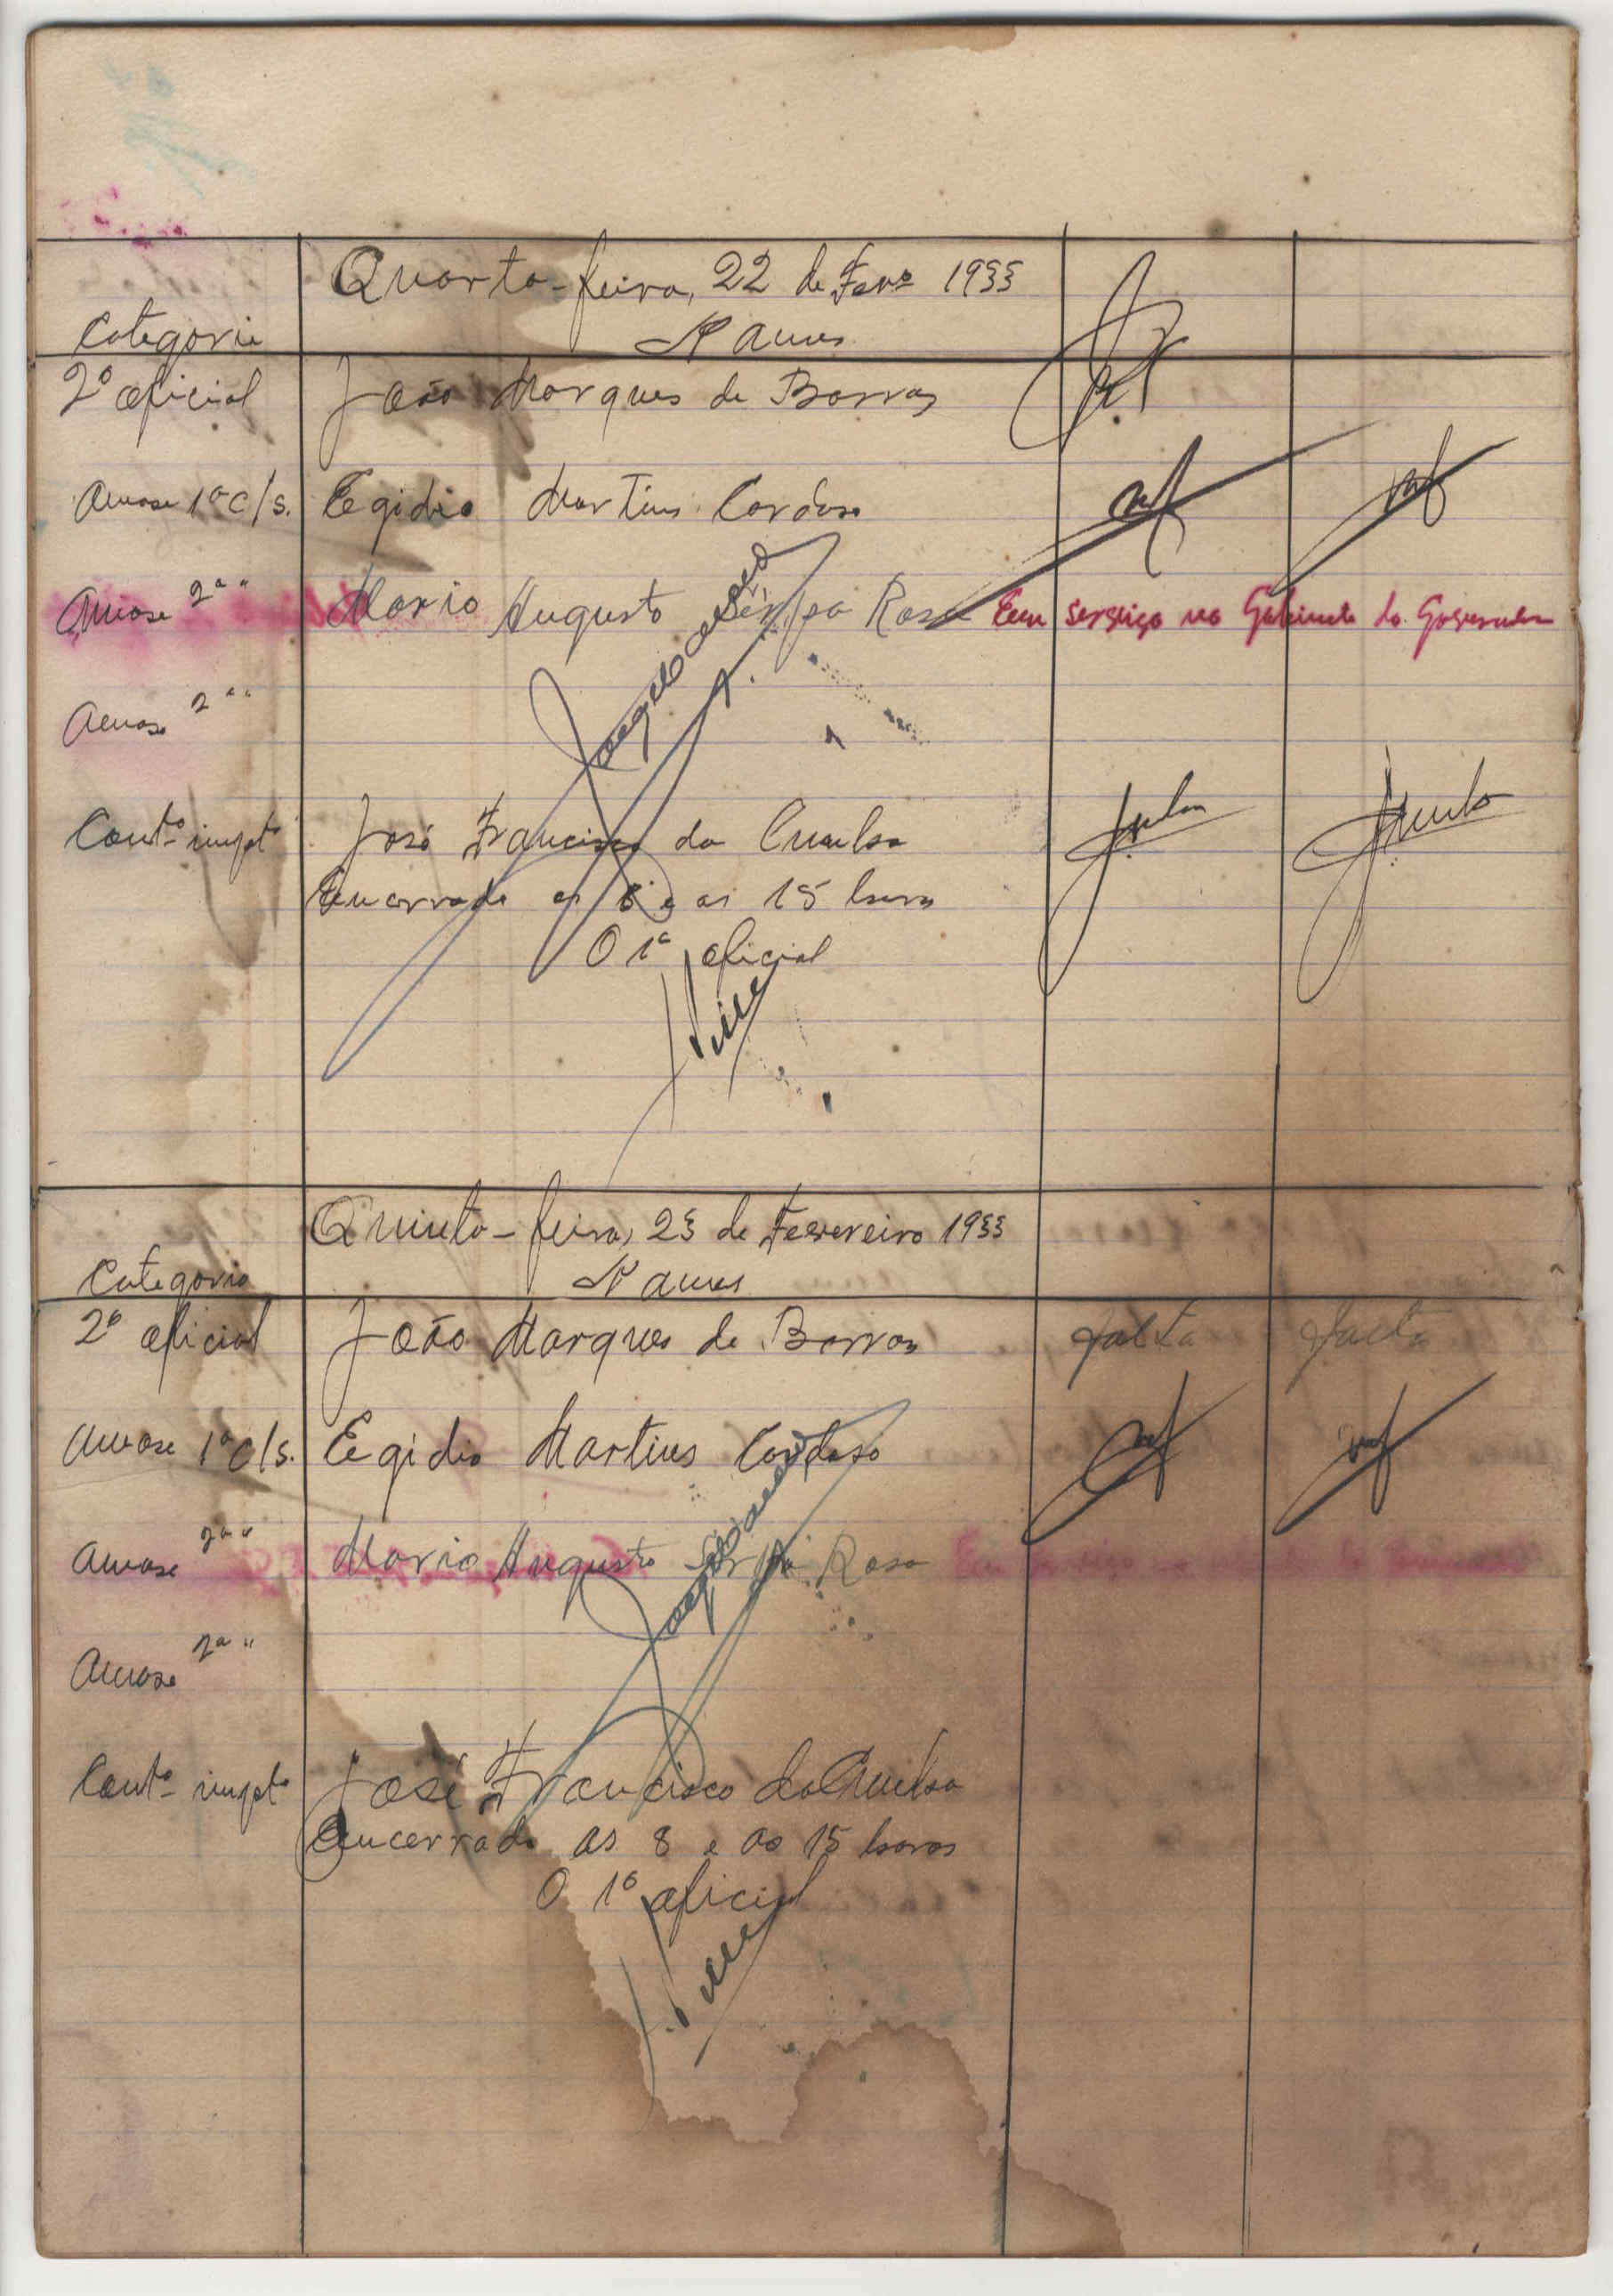 Quarta-feira, 22 de Fevº 1933
Categoria Nomes
2º oficial João Marques de Barros
Amase 1ª c/s. Egidio Martins Cardoso
Amase 2ª " Mario Augusto Serpa Rosa Em serviço no Gabinete do Governador
Amase 2 " "
Contº impdº José Francisco da Cunha
Encerrado as 8 e as 15 horas
O 1º oficial
Quinta-feira, 23 de Fevereiro 1933
Categoria Nomes
2º oficial João Marques de Barros falta falta
Amase 1ª c/s. Egidio Martins Cardoso
Amase 2ª " Mario Augusto Serpa Rosa
Amase 2ª "
Contº impdº José Francisco da Cunha
Encerrado as 8 e as 15 horas
O 1º oficial